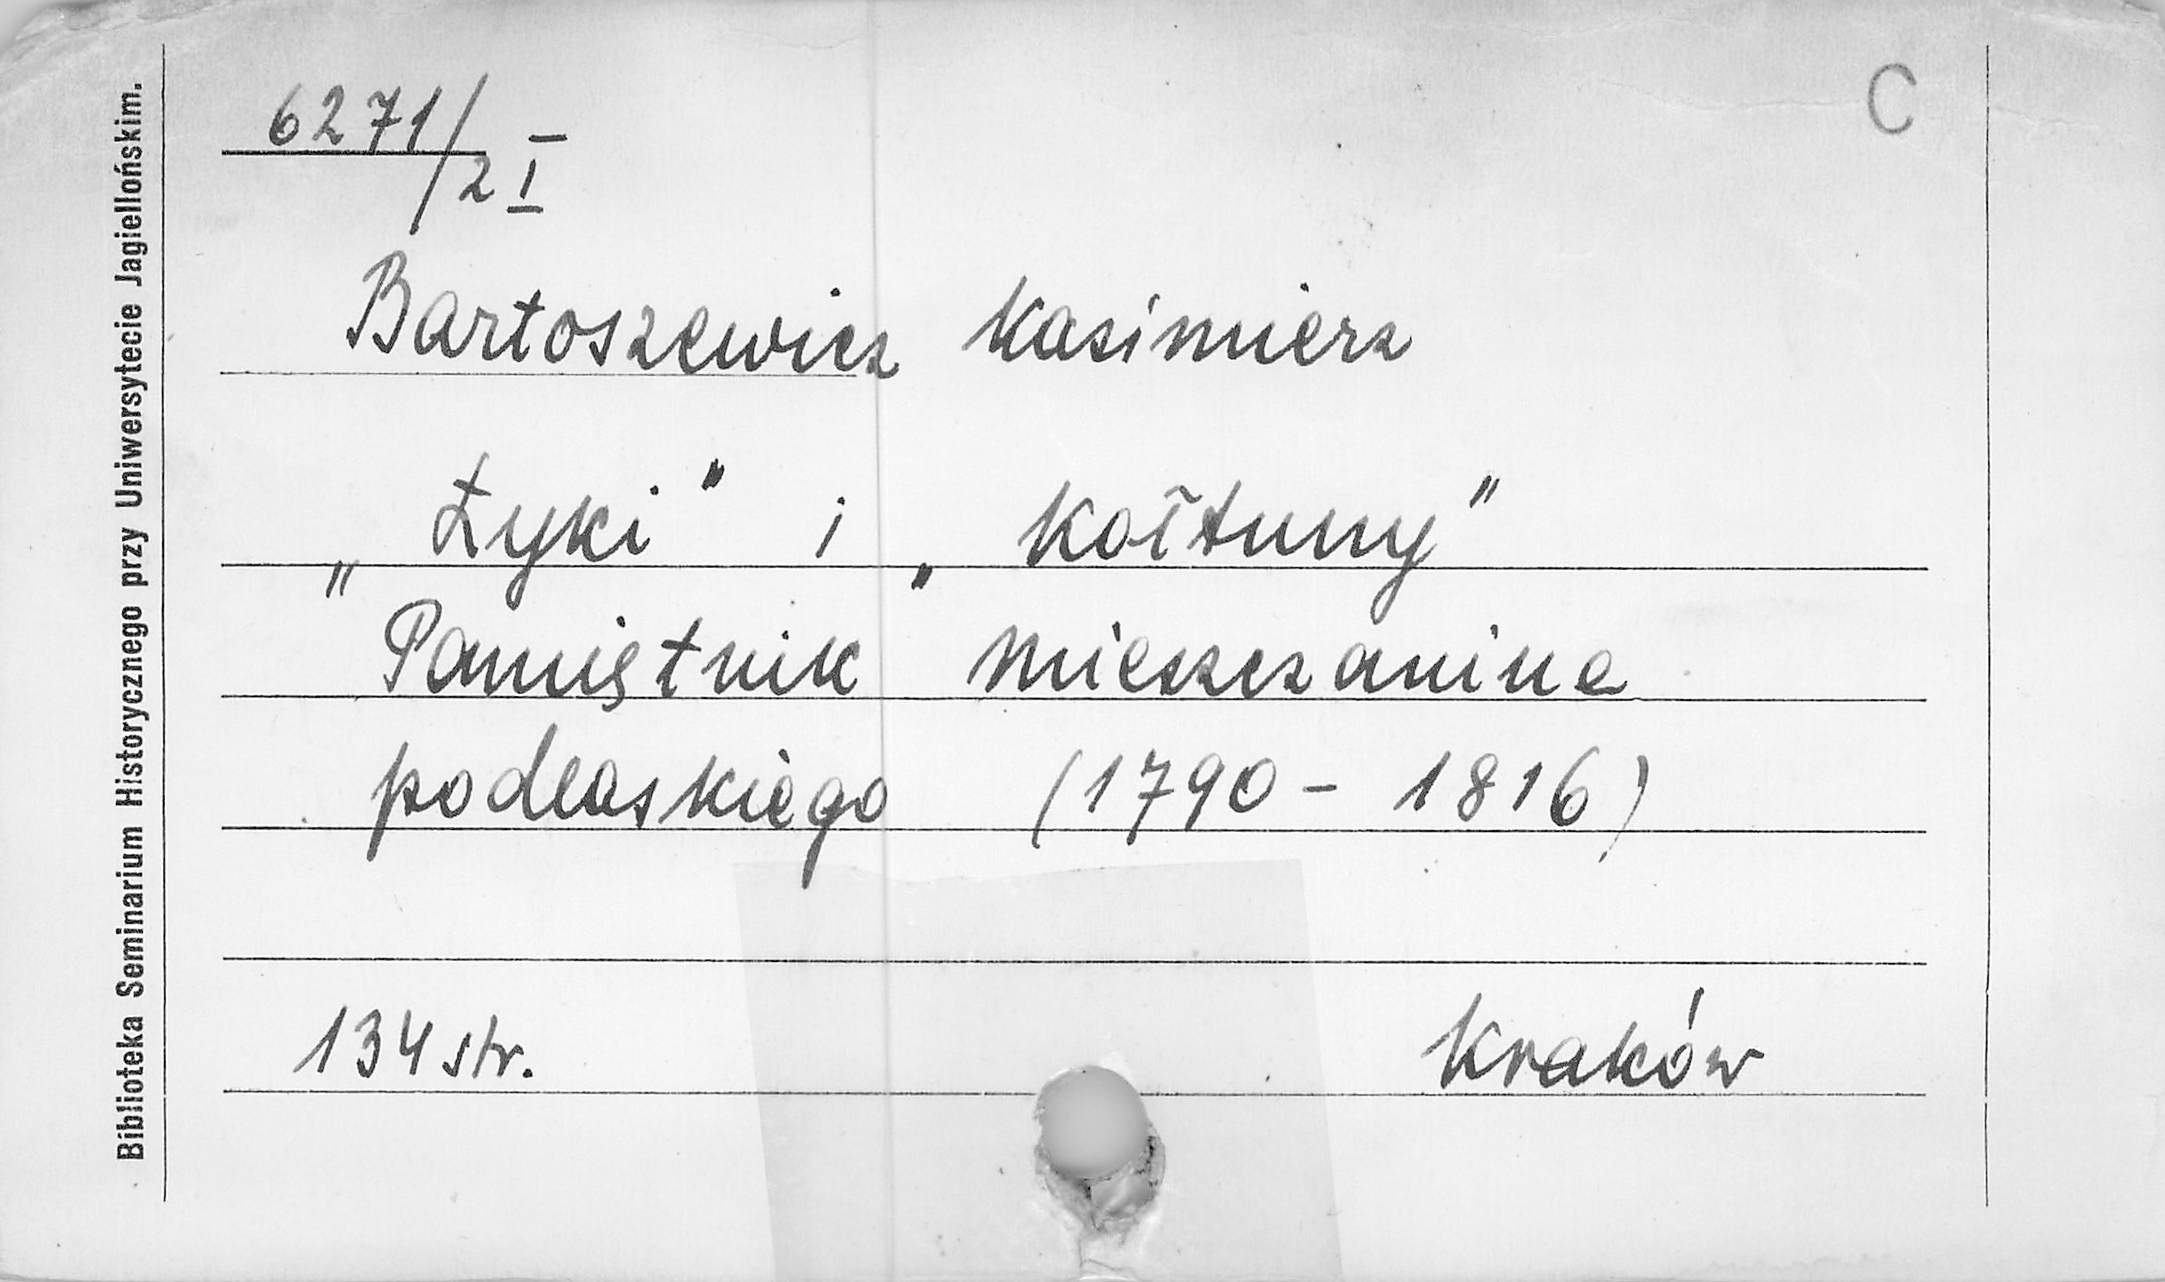 Biblioteka Seminarium Historycznego przy Uniwersytecie Jagiellońskim.
C
6271/2 I
Bartoszewicz Kazimierz
„Łyki” i „Kołtuny”
Pamiętnik mieszczanina
podlaskiego (1790 - 1816)
134 str. Kraków